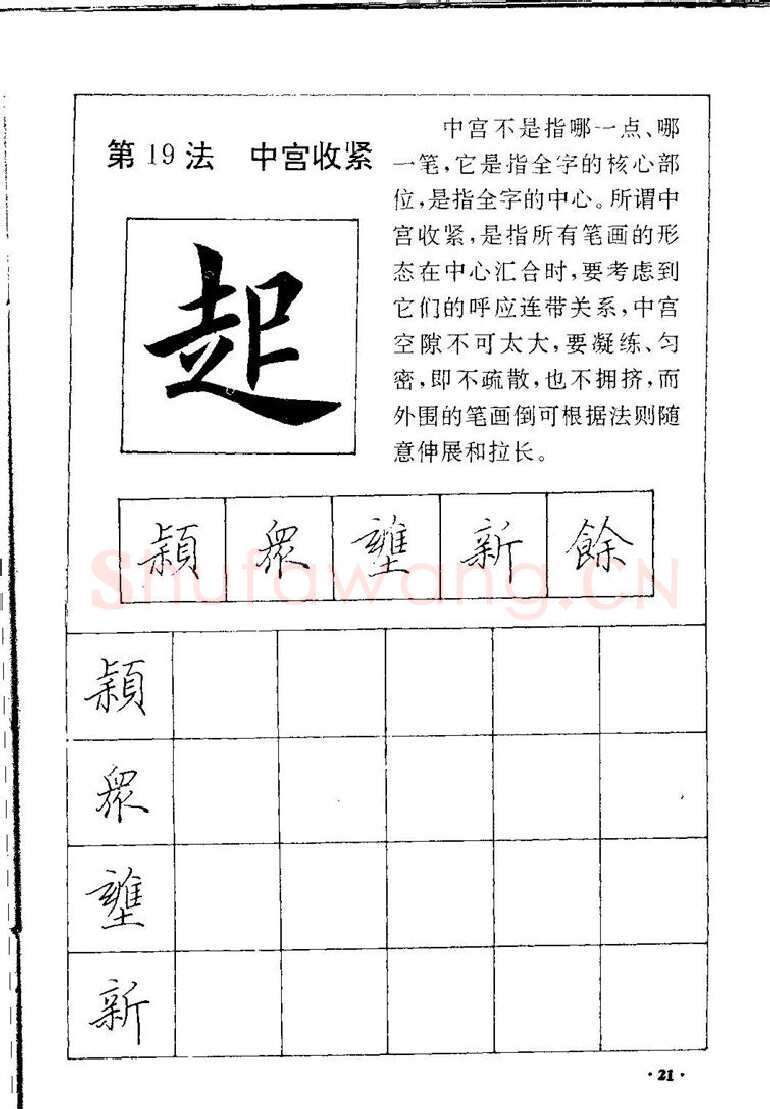 第19法 中宫收紧
中宫不是指哪一点、哪
一笔,它是指全字的核心部
位,是指全字的中心。所谓中
宫收紧,是指所有笔画的形
态在中心汇合时,要考虑到
它们的呼应连带关系,中宫
空隙不可太大,要凝练、匀
密,即不疏散,也不拥挤,而
外围的笔画倒可根据法则随
意伸展和拉长。
起
穎 眾 壅 新 餘
Shufawang.CN
穎
眾
壅
新
·21·